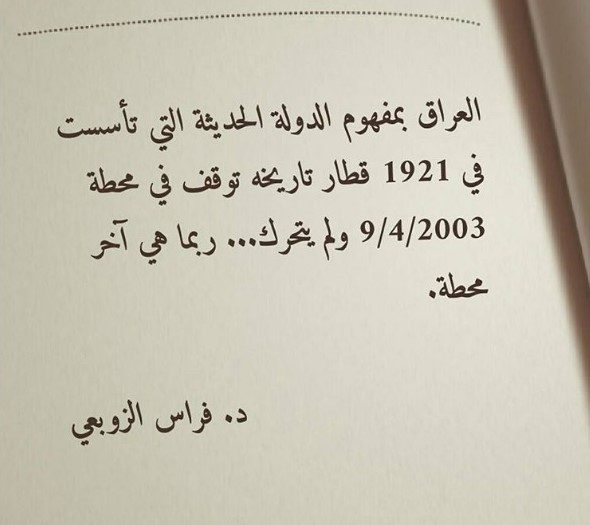 العراق بمفهوم الدولة الحديثة التي تأسست
في 1921 قطار تاريخه توقف في محطة
9/4/2003 ولم يتحرك... ربما هي آخر
محطة.
د. فراس الزوبعي